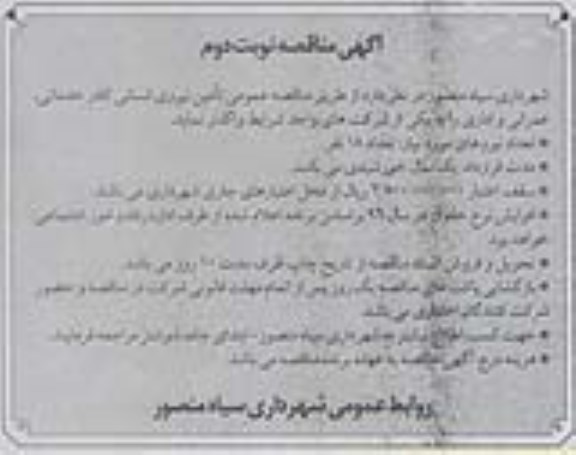 آگهی مناقصه نوبت دوم
شهرداری سیاه منصور در نظر دارد از طریق مناقصه عمومی تأمین نیروی انسانی کادر خدماتی،
عمرانی و اداری را به یکی از شرکت های واجد شرایط واگذار نماید.
* تعداد نیروهای مورد نیاز: تعداد ۱۸ نفر
* مدت قرارداد: یک سال خورشیدی می باشد.
* سقف اعتبار ریال از محل اعتبارهای جاری شهرداری می باشد.
* افزایش نرخ حقوق در سال ۹۶ براساس برنامه اعلام شده از طرف اداره رفاه امور اجتماعی
خواهد بود.
* تحویل و فروش اسناد مناقصه از تاریخ چاپ ظرف مدت ۱۰ روز می باشد.
* بازگشایی پاکت های مناقصه یک روز پس از اتمام مهلت قانونی شرکت در مناقصه و حضور
شرکت کنندگان اختیاری می باشد.
* جهت کسب اطلاع بیشتر به شهرداری سیاه منصور - ابتدای جاده شوشتر مراجعه فرمایید.
* هزینه درج آگهی مناقصه به عهده برنده مناقصه می باشد.
روابط عمومی شهرداری سیاه منصور